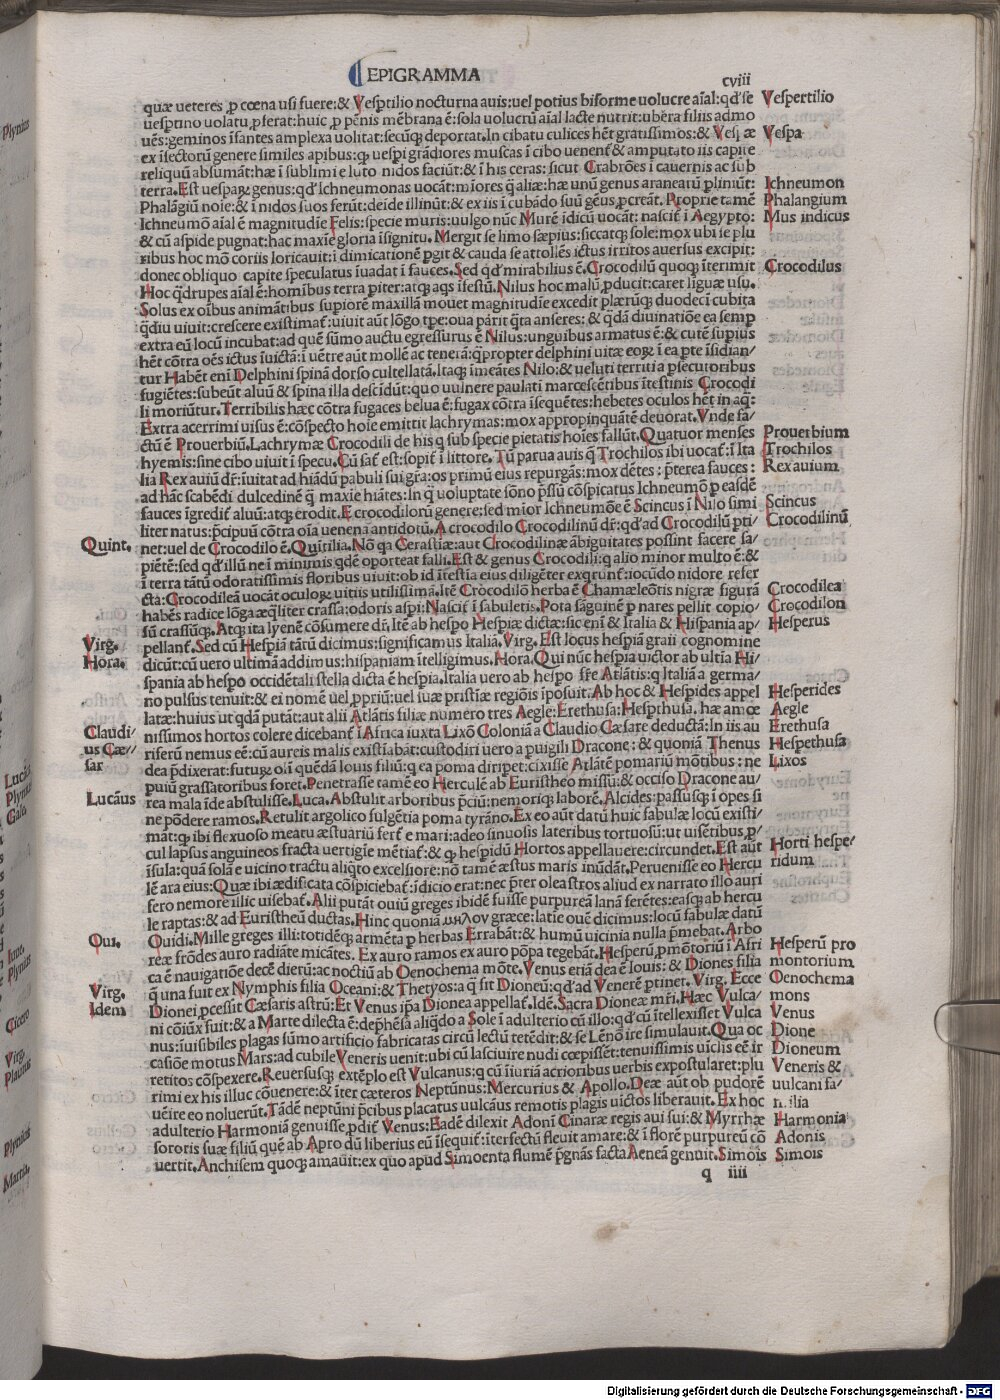 EPIGRAMMA
cviii
quæ ueteres ꝓ cœna usi fuere: & Vesꝑtilio nocturna auis: uel potius biforme uolucre aīal: qđ se
uesꝑtino uolatu ꝓferat: huic ꝓ pēnis mēbrana ē: sola uolucrū aīal lacte nutrit: ubera filiis admo
uēs: geminos īfantes amplexa uolitat: secūqꝫ deportat. In cibatu culices hēt gratissimos: & Vespæ
ex īsectorū genere similes apibus: qꝫ uespi grādiores muscas ī cibo uenent̄ & amputato iis capite
reliquū absumāt: hæ ī sublimi e luto nidos faciūt: & ī his ceras: sicut Crabrōes ī cauernis ac sub
terra. Est uespaꝝ genus: qđ Ichneumonas uocāt: mīores q̄ aliæ: hæ unū genus aranearū ꝑīmūt:
Phalāgiū noīe: & ī nidos suos ferūt: deide illinūt: & ex iis ī cubādo suū gēus ꝓcreāt. Proprie tamē
Ichneumō aīal ē magnitudīe Felis: specie muris: uulgo nūc Murē īdicū uocāt: nascit̄ ī Aegypto:
& cū aspide pugnat: hac maxīe gloria īsignitu. Mergit se limo sæpius: siccatqꝫ sole: mox ubi īe plu
ribus hoc mō coriis loricauit: ī dimicationē ꝑgit & cauda se attollēs ictus irritos auersus excipit:
donec obliquo capite speculatus īuadat ī fauces. Sed qđ mirabilius ē. Crocodilū quoqꝫ īterimit
Hoc q̄drupes aīal ē: homībus terra ꝑiter: atqꝫ aqs īfestū. Nilus hoc malū ꝓducit: caret līguæ usu.
Solus ex oībus animātibus supiorē maxillā mouet magnitudīe excedit plærūqꝫ duodeci cubita
q̄diu uiuit: crescere existimat̄: uiuit aūt lōgo tꝑe: oua parit q̄ta anseres: & q̄dā diuinatiōe ea semꝑ
extra eū locū incubat: ad quē sūmo auctu egressurus ē Nilus: unguibus armatus ē: & cutē supius
hēt cōtra oēs ictus īuictā: ī uētre aūt molle ac tenerā: q̄propter delphini uitæ eoꝝ ī ea pte īsidian/
tur Habēt enī Delphini spinā dorso cultellatā. Itaqꝫ īmeātes Nilo: & ueluti territi a ꝑsecutoribus
fugiētes: subeūt aluū & spina illa descīdūt: quo uulnere paulati marcescētibus ītestinis Crocodi
li moriūtur. Terribilis hæc cōtra fugaces belua ē: fugax cōtra īsequētes: hebetes oculos hēt in aq̄:
Extra acerrimi uisus ē: cōspecto hoīe emittit lachrymas: mox appropinquātē deuorat. Vnde fa/
ctū ē Prouerbiū. Lachrymæ Crocodili de his q sub specie pietatis hoīes fallūt. Quatuor menses
hyemis: sine cibo uiuit ī specu. Cū sat̄ est: sopit̄ ī littore. Tū parua auis q̄ Trochilos ibi uocat̄: ī Ita
lia Rex auiū dr̄: īuitat ad hiādū pabuli sui gr̄a: os primū eius repurgās: mox dētes: p̄terea fauces:
ad hāc scabēdi dulcedinē q̄ maxīe hiātes: In q̄ uoluptate sōno p̄ssū cōspicatus Ichneumō ꝑ easdē
fauces īgredit̄ aluū: atqꝫ erodit. E crocodilorū genere: sed mīor Ichneumōe ē Scincus ī Nilo simi
liter natus: p̄cipuū cōtra oīa uenena antidotū. A crocodilo Crocodilinū dr̄: qđ ad Crocodilū ꝑti/
net: uel de Crocodilo ē. Quītilia. Nō q̄a Cerastiæ: aut Crocodilinæ ābiguitates possint facere sa/
piētē: sed qđ illū ne ī minimis qdē oporteat falli. Est & genus Crocodili: q alio minor multo ē: &
ī terra tātū odoratissimis floribus uiuit: ob id ītestīa eius diligēter exqrunt̄: iocūdo nidore refer
cta: Crocodileā uocāt oculoꝝ uitiis utilissimā. Itē Crocodilō herba ē Chamæleōtis nigræ figurā
habēs radice lōga æq̄liter crassa: odoris aspi: Nascit̄ ī sabuletis. Pota sāguinē ꝑ nares pellit copio/
sū crassūqꝫ. Atqꝫ ita lyenē cōsumere dr̄. Itē ab hesꝑo Hesꝑiæ dictæ: sic enī & Italia & Hispania ap/
pellant̄. Sed cū Hesꝑiā tātū dicimus: significamus Italiā. Virg. Est locus hesꝑiā graii cognomine
dicūt: cū uero ultimā addimus: hispaniam ītelligimus. Hora. Qui nūc hesꝑia uictor ab ultīa Hi/
spania ab hesꝑo occidētali stella dicta ē hesꝑia. Italia uero ab hesꝑo fr̄e Atlātis: q Italiā a germa/
no pulsus tenuit: & ei nomē uel ꝓpriū: uel suæ pristīæ regiōis īposuit. Ab hoc & Hesꝑides appel
latæ: huius ut qdā putāt: aut alii Atlātis filiæ numero tres Aegle: Erethusa: Hesꝑthusa. hæ amœ
nissimos hortos colere dicebant̄ ī Africa iuxta Lixō Coloniā a Claudio Cæsare deductā: In iis au
riferū nemus eē: cū aureis malis existiabāt: custodiri uero a ꝑuigili Dracone: & quoniā Thenus
dea p̄dixerat: futuꝝ oī quēdā louis filiū: q ea poma diripet: cīxisse Atlātē pomariū mōtibus: ne
ꝑuiū grassatoribus foret. Penetrasse tamē eo Herculē ab Euristheo missū: & occiso Dracone au/
rea mala īde abstulisse. Luca. Abstulit arboribus p̄ciū: nemoriqꝫ laborē. Alcides: passusqꝫ ī opes si
ne pōdere ramos. Retulit argolico fulgētia poma tyrāno. Ex eo aūt datū huic fabulæ locū existi/
māt: qꝫ ibi flexuoso meatu æstuariū fert̄ e mari: adeo sinuosis lateribus tortuosū: ut uisētibus ꝓ/
cul lapsus anguineos fracta uertigīe mētiat̄: & qꝫ hesꝑidū Hortos appellauere: circundet. Est aūt
īsula: quā solā e uicino tractu aliq̄to excelsiore: nō tamē æstus maris inūdāt. Peruenisse eo Hercu
lē ara eius: Quæ ibi ædificata cōspiciebat̄: īdicio erat: nec p̄ter oleastros aliud ex narrato illo auri
fero nemore illic uisebat̄. Alii putāt ouiū greges ibidē fuisse purpureā lanā ferētes: easqꝫ ab hercu
le raptas: & ad Euristheū ductas. Hinc quoniā μηλον græce: latīe ouē dicimus: locū fabulæ datū
Ouidi. Mille greges illi: totidēqꝫ armēta ꝑ herbas Errabāt: & humū uicinia nulla p̄mebat. Arbo
reæ frōdes auro radiāte micātes. Ex auro ramos ex auro pōpa tegebāt. Hesperū ꝓmōtoriū ī Afri
ca ē nauigatiōe decē dierū: ac noctiū ab Oenochema mōte. Venus etiā dea ē louis: & Diones filia
q̄ una fuit ex Nymphis filia Oceani: & Thetyos: a q̄ fit Dioneū: qđ ad Venerē ꝑtinet. Virg. Ecce
Dionei ꝓcessit Cæsaris astrū: Et Venus ip̄a Dionea appellat̄. Idē. Sacra Dioneæ mr̄i. Hæc Vulca/
ni cōiūx fuit: & a Marte dilecta ē: dephēsa aliq̄do a Sole ī adulterio cū illo: qđ cū ītellexisset Vulca
nus: īuisibiles plagas sūmo artificio fabricatas circū lectū tetēdit: & se Lēnō ire simulauit. Qua oc
casiōe motus Mars: ad cubile Veneris uenit: ubi cū lasciuire nudi cœpissēt: tenuissimis uīclis eē ir
retitos cōspexere. Reuersusqꝫ extēplo est Vulcanus: q cū iuriā acrioribus uerbis expostularet: plu
rimi ex his illuc cōuenere: & īter cæteros Neptūnus: Mercurius & Apollo. Deæ aūt ob pudorē
uēire eo noluerūt. Tādē neptūni p̄cibus placatus uulcāus remotis plagis uīctos liberauit. Ex hoc
adulterio Harmoniā genuisse ꝓdit̄ Venus: Eadē dilexit Adonī Cinaræ regis aui sui: & Myrrhæ
sororis suæ filiū quē ab Apro dū liberius eū īsequit̄: īterfectū fleuit amare: & ī florē purpureū cō
uertit. Anchisem quoqꝫ amauit: ex quo apud Simoenta flumē p̄gnās facta Aeneā genuit. Simois
q iiii
Vespertilio
Vespa
Ichneumon
Phalangium
Mus indicus
Crocodilus
Prouerbium
Trochilos
Rex auium
Scincus
Crocodilinū
Crocodilea
Crocodilon
Hesperus
Hesperides
Aegle
Erethusa
Hespethusa
Lixos
Horti hespe/
ridum
Hesperū pro
montorium
Oenochema
mons
Venus
Dione
Dioneum
Veneris &
uulcani fa/
milia
Harmonia
Adonis
Simois
Quint.
Virg.
Hora.
Claudi/
us Cæ//
sar
Lucāus
Oui.
Virg.
Idem
Plynius
Plynius
Cicero
Virg.
Plautus
Plynius
Digitalisierung gefördert durch die Deutsche Forschungsgemeinschaft - DFG